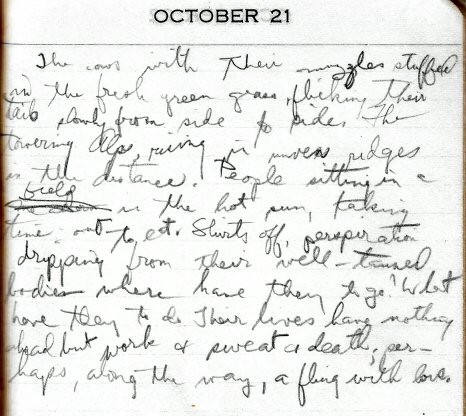 OCTOBER 21
The cows with their muzzles stuffed
in the fresh green grass, flicking their
tails slowly from side to side. The
towering Alps, rising in uneven ridges
in the distance. People sitting in a
field in the hot sun, taking
time out to eat. Shirts off, perspiration
dripping from their well-tanned
bodies where have they to go? What
have they to do Their lives have nothing
ahead but work & sweat & death, per-
haps, along the way, a fling with love.